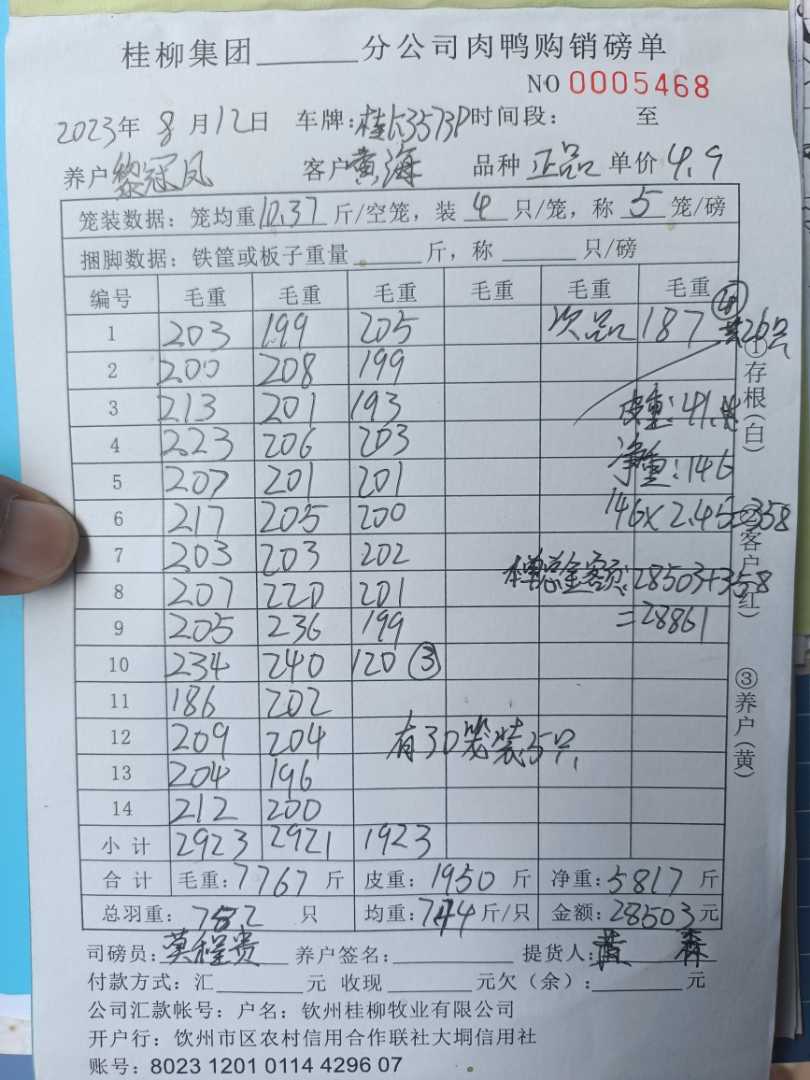 桂柳集团______分公司肉鸭购销磅单
NO 0005468
2023年 8 月 12 日 车牌:桂K3573P 时间段: 至
养户 黎冠凤 客户 黄海 品种 正品 单价 4.9
笼装数据:笼均重 10.37 斤/空笼,装 4 只/笼,称 5 笼/磅
捆脚数据:铁筐或板子重量______斤,称______只/磅
编号 毛重 毛重 毛重 毛重 毛重 毛重
1 203 199 205 次品 187 共26只
2 200 208 199
3 213 201 193 皮重:41.
4 223 206 203
5 207 201 201 净重:146
6 217 205 200 146×2.45=358
7 203 203 202
8 207 220 201 总金额:28503+358
9 205 236 199 =28861
10 234 240 120 ③
11 186 202
12 209 204 有30笼装5只
13 204 196
14 212 200
小计 2923 2921 1923
合计 毛重:7767 斤 皮重:1950 斤 净重:5817 斤
总羽重: 782 只 均重:7.44 斤/只 金额:28503 元
司磅员:莫程贵 养户签名:______ 提货人:黄森
付款方式:汇______元 收现______元欠(余):______元
公司汇款帐号:户名:钦州桂柳牧业有限公司
开户行:钦州市区农村信用合作联社大垌信用社
账号:8023 1201 0114 4296 07
①存根(白)
②客户(红)
③养户(黄)